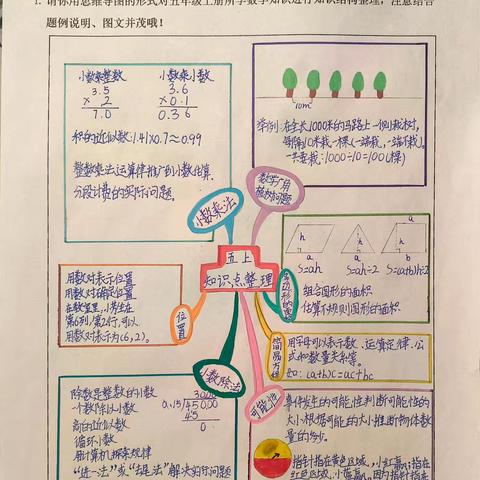 1. 请你用思维导图的形式对五年级上册所学数学知识进行知识结构整理，注意结合
题例说明、图文并茂哦！
小数乘整数 小数乘小数
3.5 3.6
× 2 × 0.1
7.0 0.36
积的近似数：1.41×0.7≈0.99
整数乘法运算律推广到小数估算.
分段计费的实际问题.
10m
举例：在全长1000米的马路上一侧栽树,
每隔10米栽一棵(一端栽,一端不栽).
一共要栽：1000÷10=100(棵)
小数乘法
数学广角
植树问题
五上
知识点整理
用数对表示位置
用数对确定位置
在教室里,小芳坐在
第6列,第2行,可以
用数对表示为(6,2).
位置
h a h a a h b
S=ah S=ah÷2 S=(a+b)h÷2
组合图形的面积
估算不规则图形的面积.
多边形的面积
简易方程
用字母可以表示数、运算定律、公
式和数量关系等.
如：(a+b)c=ac+bc
小数除法
除数是整数的小数
一个数除以小数
商的近似数
循环小数
用计算机探索规律
“进一法”或“去尾法”解决实际问题
300
0.15)45.00
45
0
可能性
事件发生的可能性判断可能性的
大小,根据可能性的大小推断物体数
量的多少.
指针指在黄色区域,小红赢;指在
红色区域,小蓝赢.因为指针指在